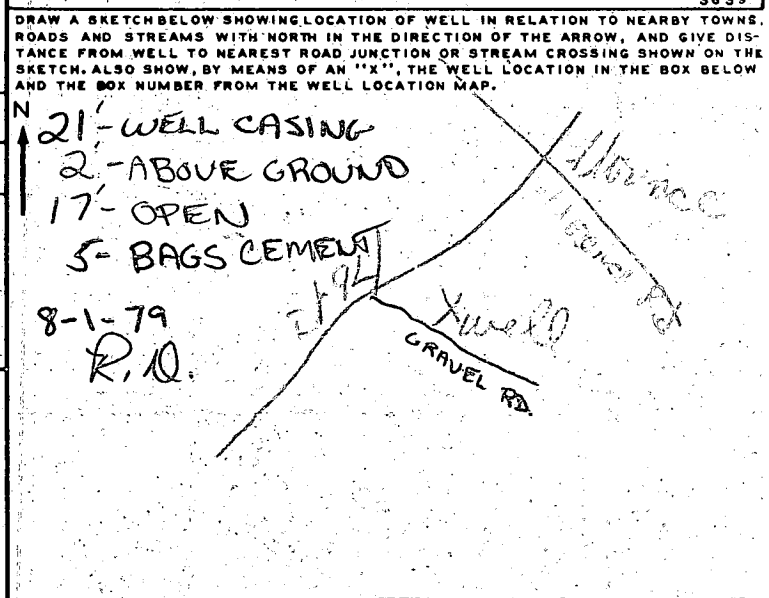 DRAW A SKETCH BELOW SHOWING LOCATION OF WELL IN RELATION TO NEARBY TOWNS,
ROADS AND STREAMS WITH NORTH IN THE DIRECTION OF THE ARROW, AND GIVE DIS-
TANCE FROM WELL TO NEAREST ROAD JUNCTION OR STREAM CROSSING SHOWN ON THE
SKETCH. ALSO SHOW, BY MEANS OF AN "X", THE WELL LOCATION IN THE BOX BELOW
AND THE BOX NUMBER FROM THE WELL LOCATION MAP.
N
21'-WELL CASING
2'-ABOVE GROUND
17'- OPEN
5- BAGS CEMENT
8-1-79
X well
GRAVEL RD.
Rd